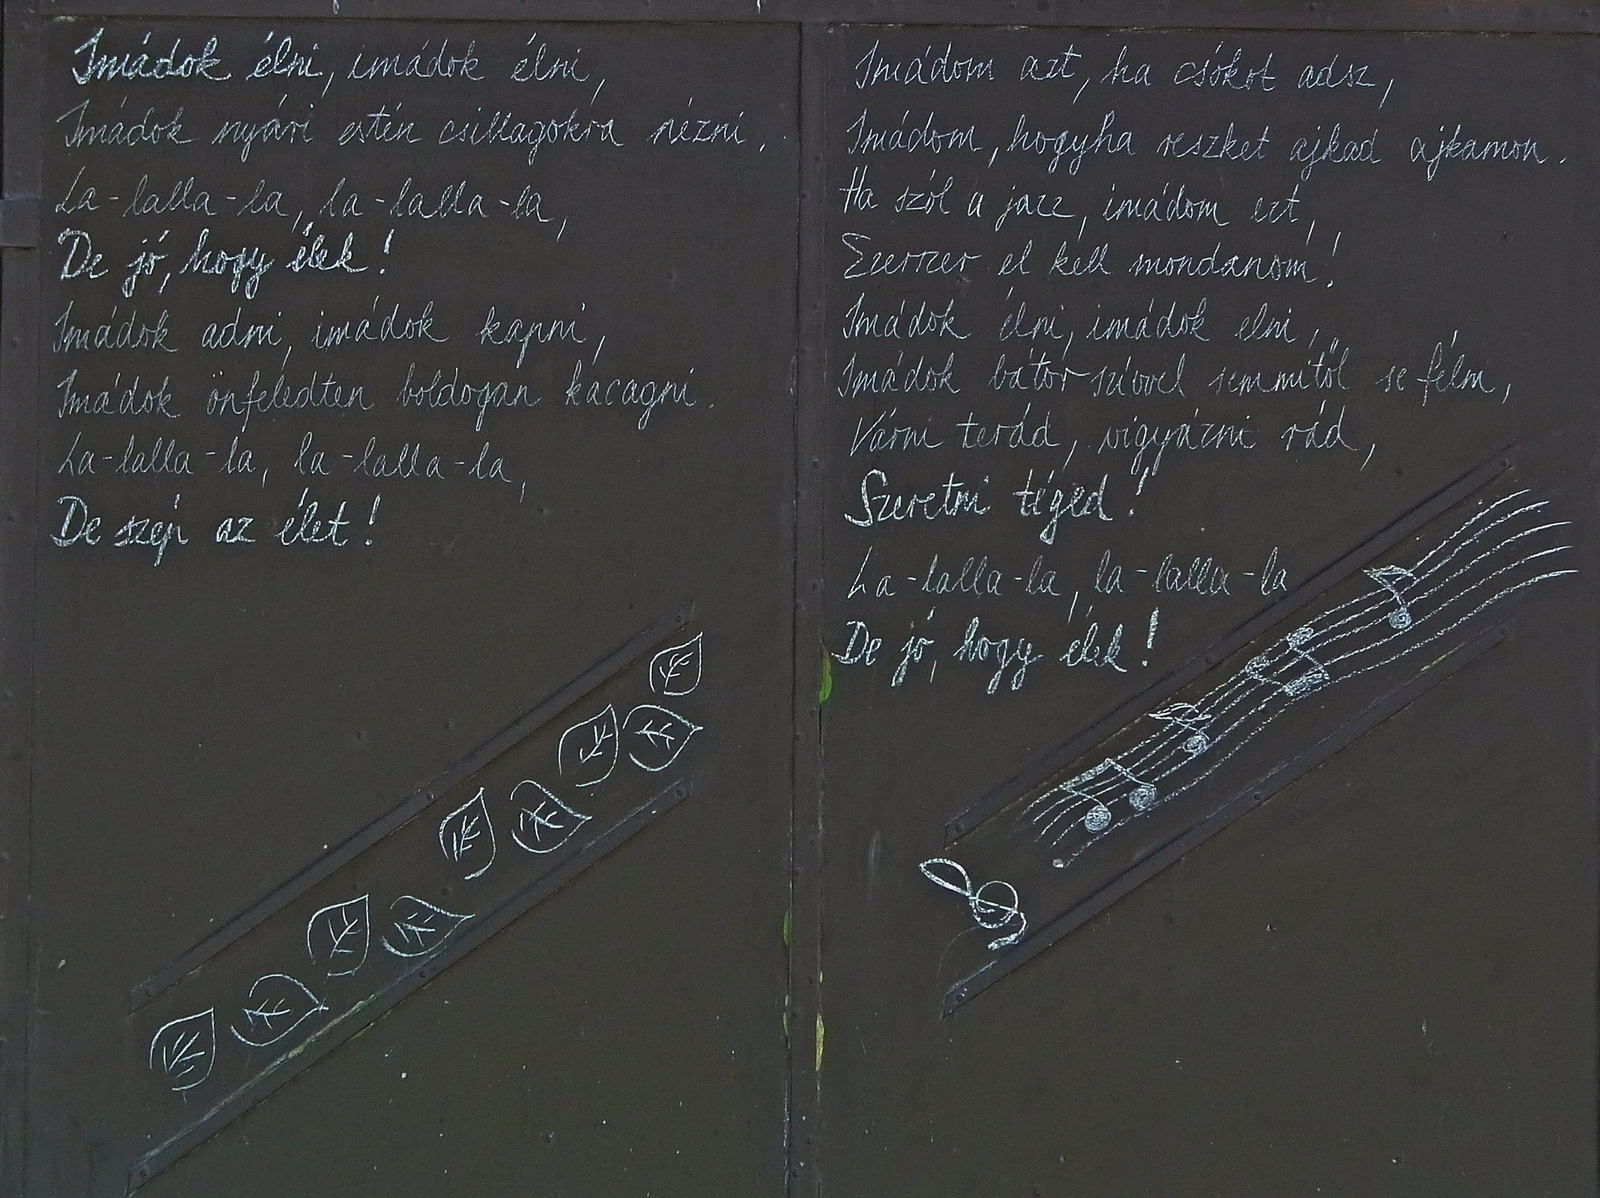 Imádok élni, imádok élni,
Imádok nyári estén csillagokra nézni.
La-lalla-la, la-lalla-la,
De jó, hogy élek!
Imádok adni, imádok kapni,
Imádok önfeledten boldogan kacagni.
La-lalla-la, la-lalla-la,
De szép az élet!
Imádom azt, ha csókot adsz,
Imádom, hogyha reszket ajkad ajkamon.
Ha szól a jazz, imádom ezt,
Ezerszer el kell mondanom!
Imádok élni, imádok élni,
Imádok bátor szívvel semmitől se félni,
Várni terád, vigyázni rád,
Szeretni téged!
La-lalla-la, la-lalla-la
De jó, hogy élek!